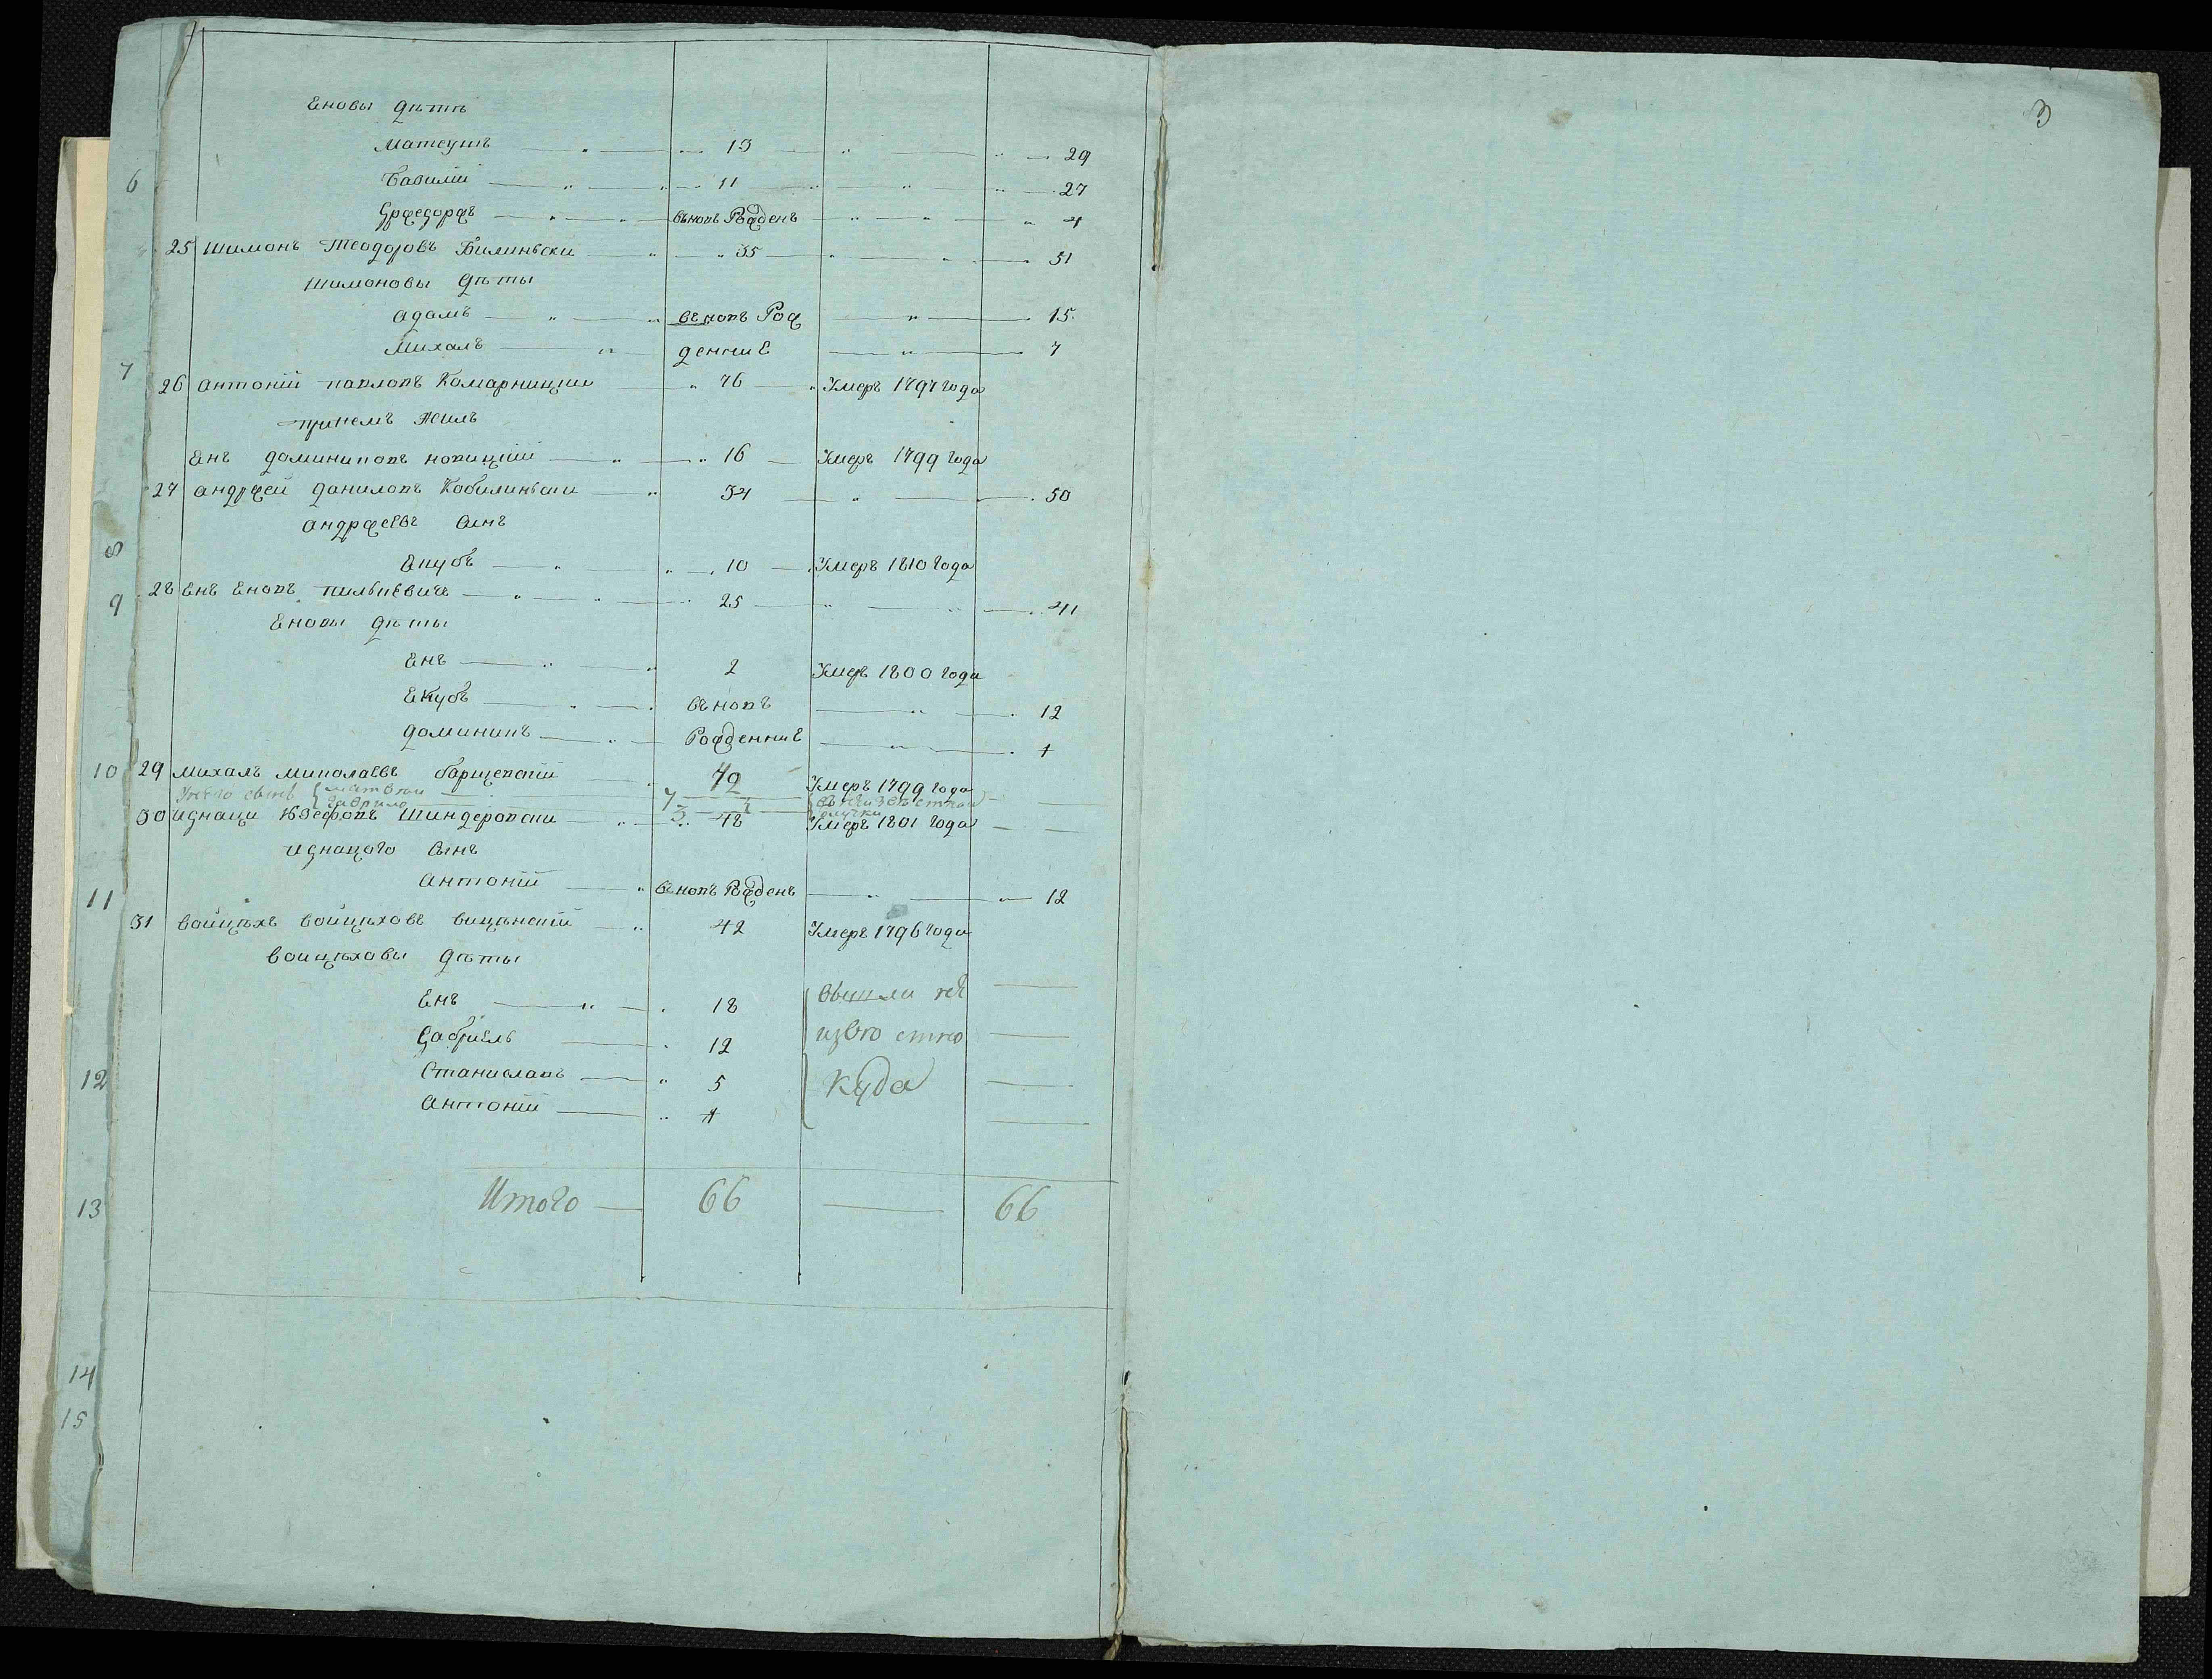 3
Еновы дѣтѣ
Матеушъ 13 29
6
Василій 11 27
вновъ Рожденъ 4
25 Шимонъ Теодоровъ Билиньски 35 51
Шимоновы дѣты
Адамъ вьновъ Рож 15
Михалъ денние 7
7
26 Антоній павловъ Комарницки 76 Умеръ 1797 года
принемъ жилъ
Енъ доминиковъ новицкій 16 Умеръ 1799 года
27 андржей даниловъ Кобилиньски 34 50
андржеевъ Сынъ
8
Екубъ 10 Умеръ 1810 Года
28 Енъ Еновъ пилькевичъ 25 41
9
Еновы дѣты
Енъ 2 Умеръ 1800 года
Екубъ вьновъ 12
доминикъ Рожденние 1
10 29 михалъ миколаевъ борщевскій 42 Умеръ 1799 года
7
3
30 Игнаци Юзефовъ Шиндеровски 48 Умеръ 1801 года
игнацого Сынъ
11
Антоній вновъ Рожденъ 12
31 войцѣхъ войцѣховъ вицѣнский 42 Умеръ 1796 года
войцѣховы дѣты
Енъ 18
Габриель 12
12
Станиславъ 5 куда
Антоній 1
13
Итого 66 66
14
15